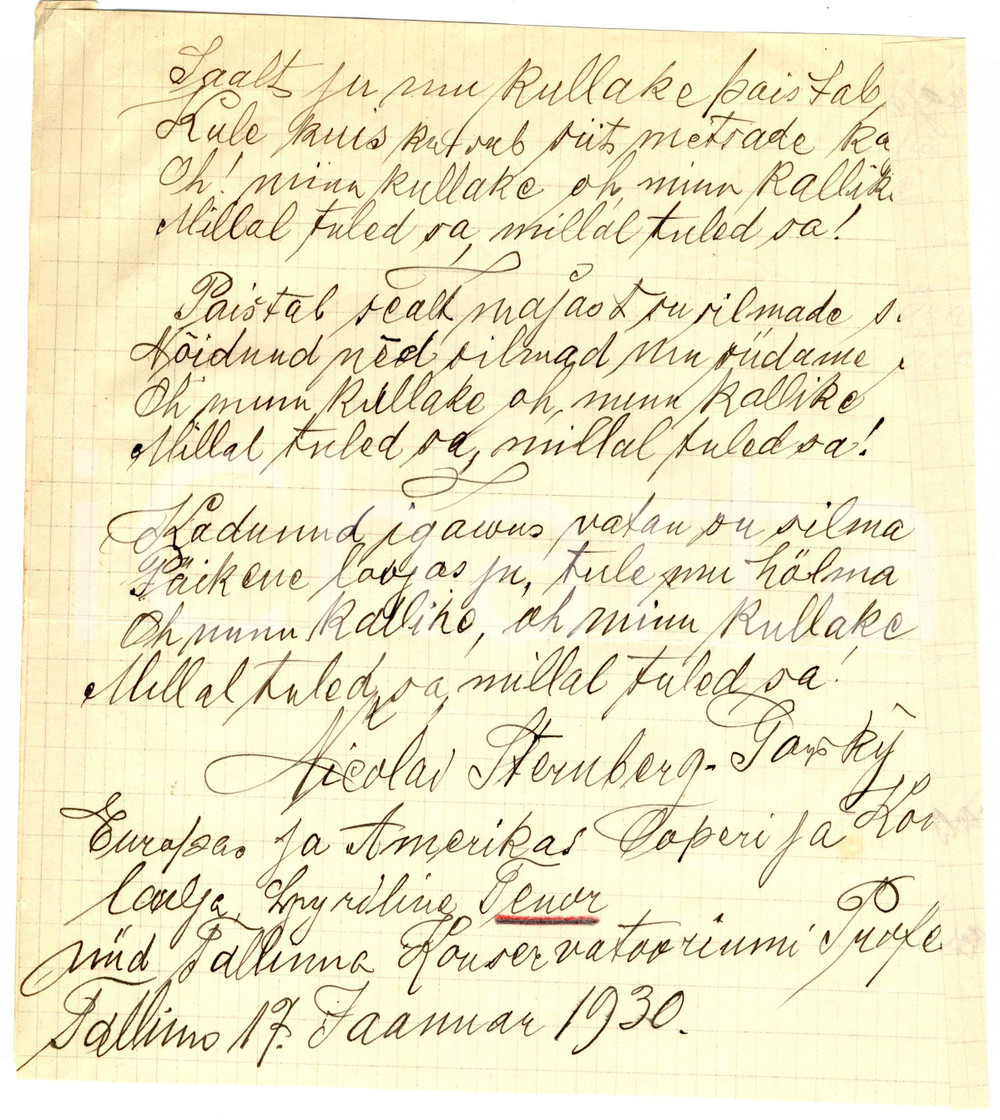 Saalt ju mu kullake paistab
Kule kuis kutsub siit metsade ka
Oh! minu kullake oh, minu kallik
Millal tuled sa, millal tuled sa!
Paistab sealt majast su silmade s
Nõidund nēd silmad mu südame
Oh minu kullake oh, minu kallike
Millal tuled sa, millal tuled sa!
Kadunud igawus vatan su silma
Päikene loojas ju, tule mu hõlma
Oh minu kallike, oh minu kullake
Millal tuled sa, millal tuled sa!
Nicolai Sternberg-
Europas ja Amerikas Ooperi ja Kon
laulja, Lyriline Tenor
nüid Tallinna Konservatooriumi Profe
Tallinn 17. Jaanuar 1930.